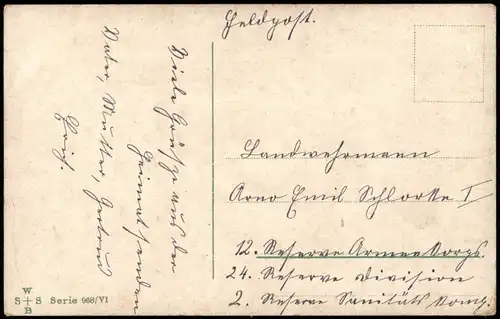 Feldpost.
Viele Grüße aus der
Heimat senden
Vater, Mutter, Gertrud
Landwehrmann
Arno Emil Schlorke I
12. Reserve Armee Korps.
24. Reserve Division
2. Reserve Sanitäts Komp.
W
S+S Serie 968/VI
B